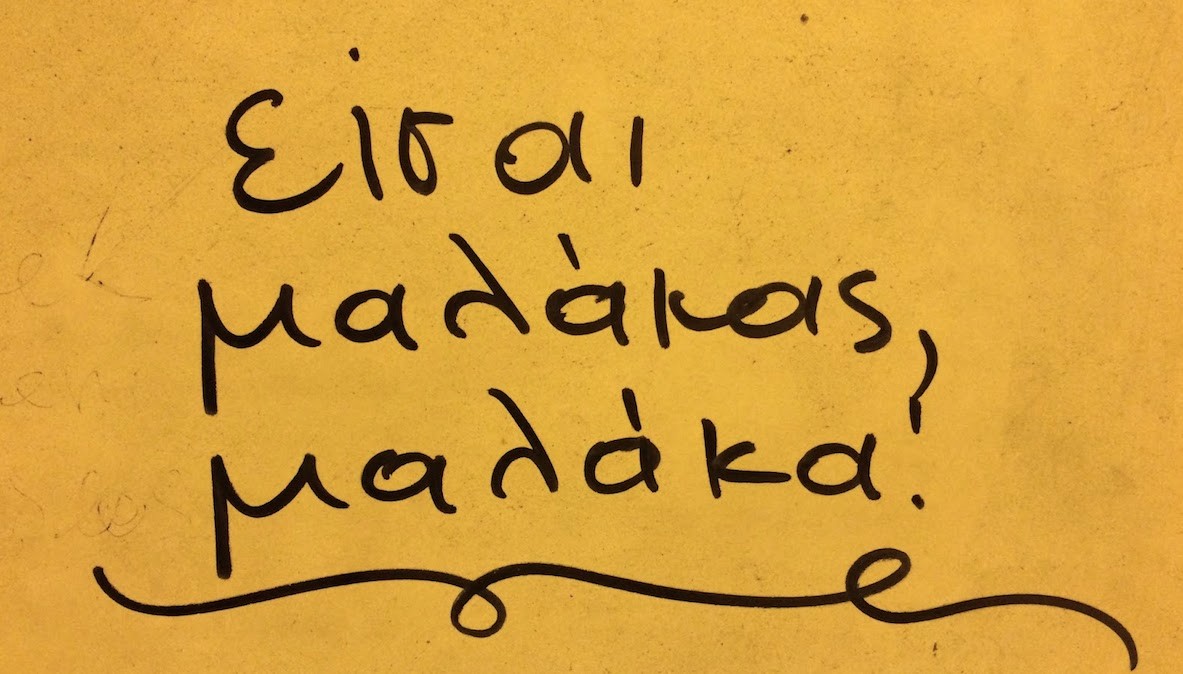 Είσαι
μαλάκας,
μαλάκα!